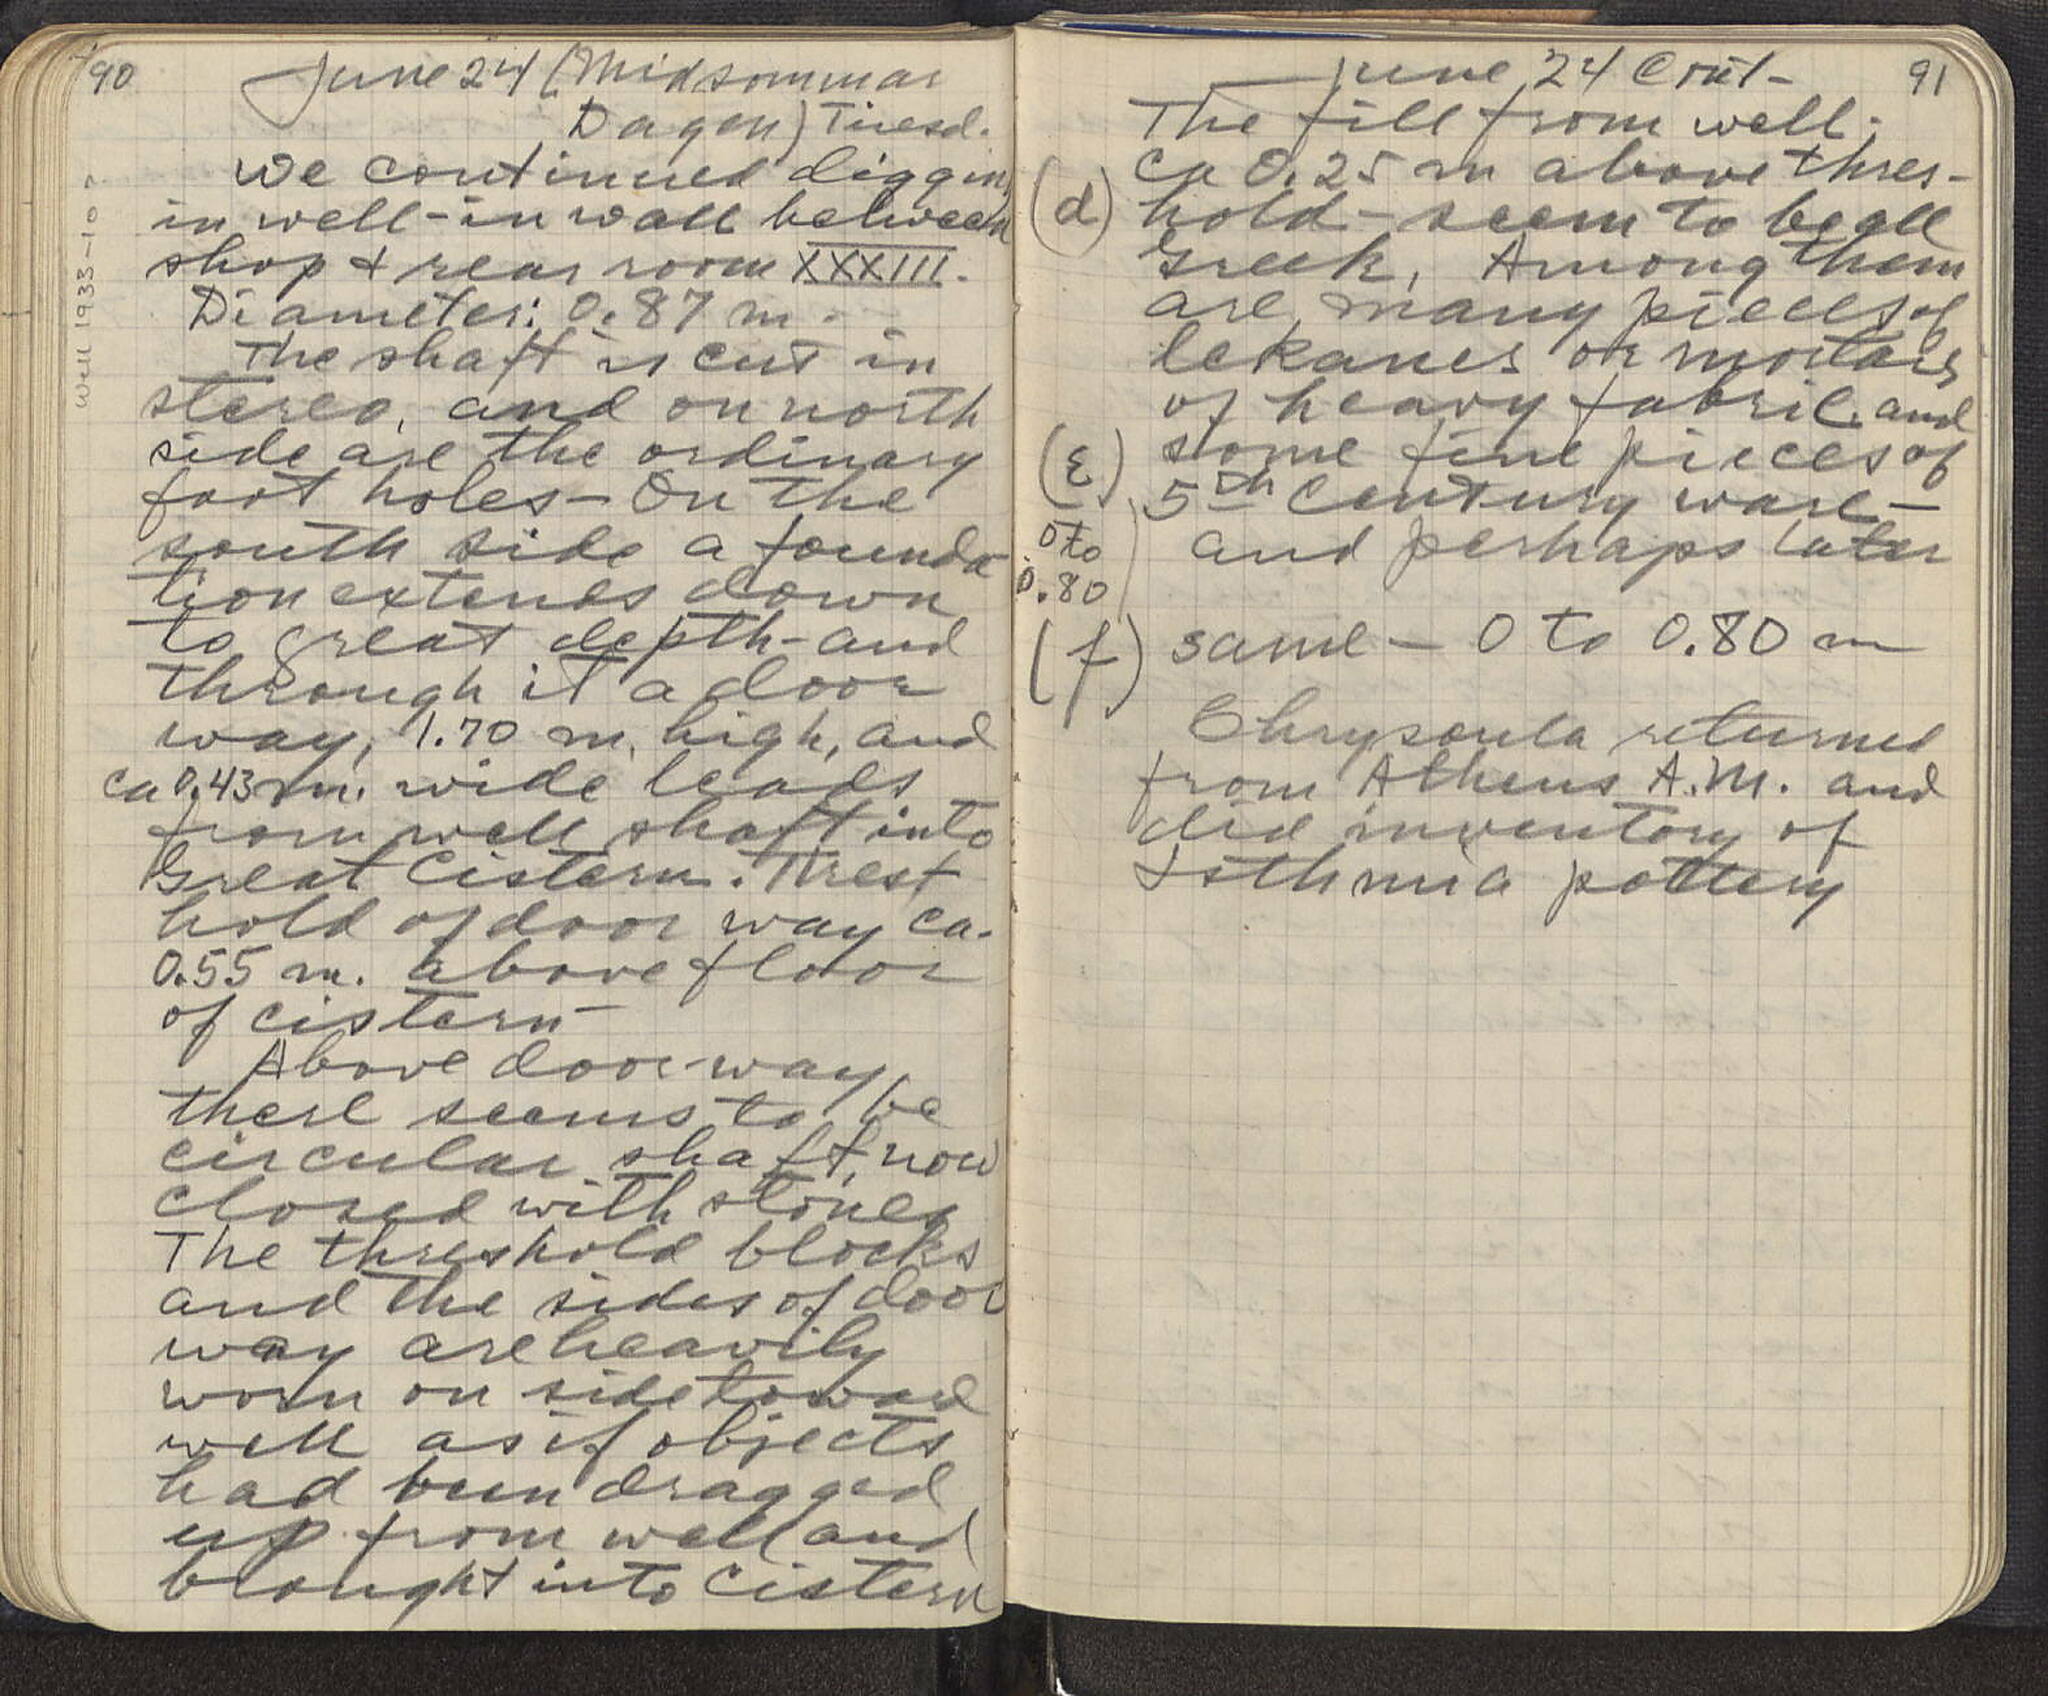 90
June 24 (Midsommar
Dagen) Tuesd.
We continued digging
in well-in wall between
shop + rear room XXXIII.
Diameter: 0.87 m.
The shaft is cut in
stereo, and on north
side are the ordinary
foot holes - On the
south side a founda
tion extends down
to great depth - and
through it a door
way, 1.70 m. high, and
ca 0.43 m. wide leads
from well shaft into
Great Cistern. Thres
hold of door way ca.
0.55 m. above floor
of cistern -
Above door-way
there seems to be
circular shaft, now
closed with stones
The threshold blocks
and the sides of door
way are heavily
worn on side toward
well as if objects
had been dragged
up from well and
brought into cistern
Well 1933-10?
June 24 Cont- 91
The fill from well,
ca 0.25 m above thres-
(d) hold - seem to be all
Greek. Among them
are many pieces of
lekanes or mortars
of heavy fabric and
(ε) some fine pieces of
5th Century ware -
0 to and perhaps later
0.80
(f) same - 0 to 0.80 m
Chrysoula returned
from Athens A.M. and
did inventory of
Isthmia pottery